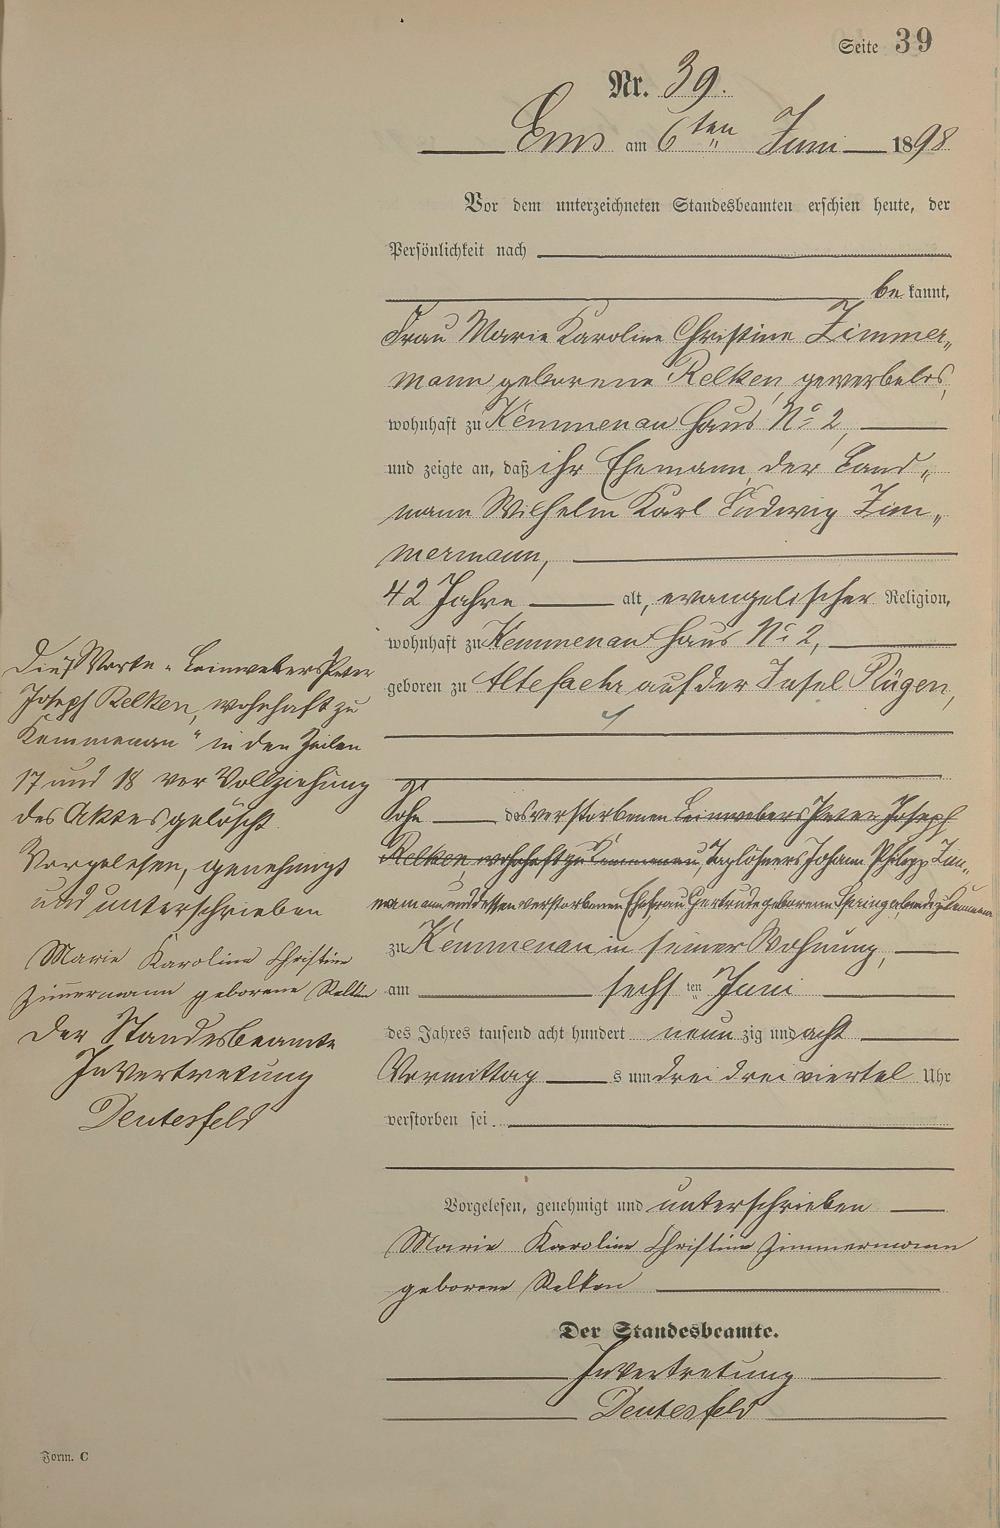 Seite 39
Nr. 39.
Ems am 6ten Juni 1898
Vor dem unterzeichneten Standesbeamten erschien heute, der
Persönlichkeit nach
bekannt,
Frau Marie Karoline Christine Zimmer„
mann geborene Relken, gewerbelos,
wohnhaft zu Kemmenau Haus No 2,
und zeigte an, daß ihr Ehemann, der Land„
mann Wilhelm Karl Ludwig Zim„
mermann,
42 Jahre alt, evangelischer Religion,
wohnhaft zu Kemmenau Haus No 2,
geboren zu Altefaehr auf der Insel Rügen,
Sohn des verstorbenen Leinwebers Peter Joseph
Relken, wohnhaft zu Kemmenau, Taglöhners Johann Philipp Zim„
mermann und dessen verstorbenen Ehefrau Gertrude geborene
zu Kemmenau in seiner Wohnung,
am sechsten Juni
des Jahres tausend acht hundert neunzig und acht
Vormittags um drei drei viertel Uhr
verstorben sei.
Vorgelesen, genehmigt und unterschrieben
Marie Karoline Christine Zimmermann
geborene Relken
Der Standesbeamte.
In Vertretung
Deutesfeld
Die 7 Worte „Leinwebers Peter
Joseph Relken, wohnhaft zu
Kemmenau" in den Zeilen
17 und 18 vor Vollziehung
des Aktes gelöscht.
Vorgelesen, genehmigt
und unterschrieben
Marie Karoline Christine
Zimmermann geborene Relken
Der Standesbeamte
In Vertretung
Deutesfeld
Form. C